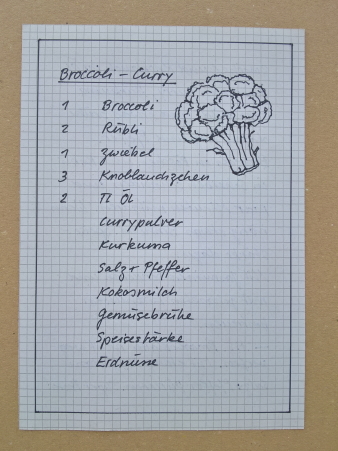 Broccoli - Curry
1 Broccoli
2 Rübli
1 Zwiebel
3 Knoblauchzehen
2 Tl Öl
Currypulver
Kurkuma
Salz + Pfeffer
Kokosmilch
Gemüsebrühe
Speisestärke
Erdnüsse